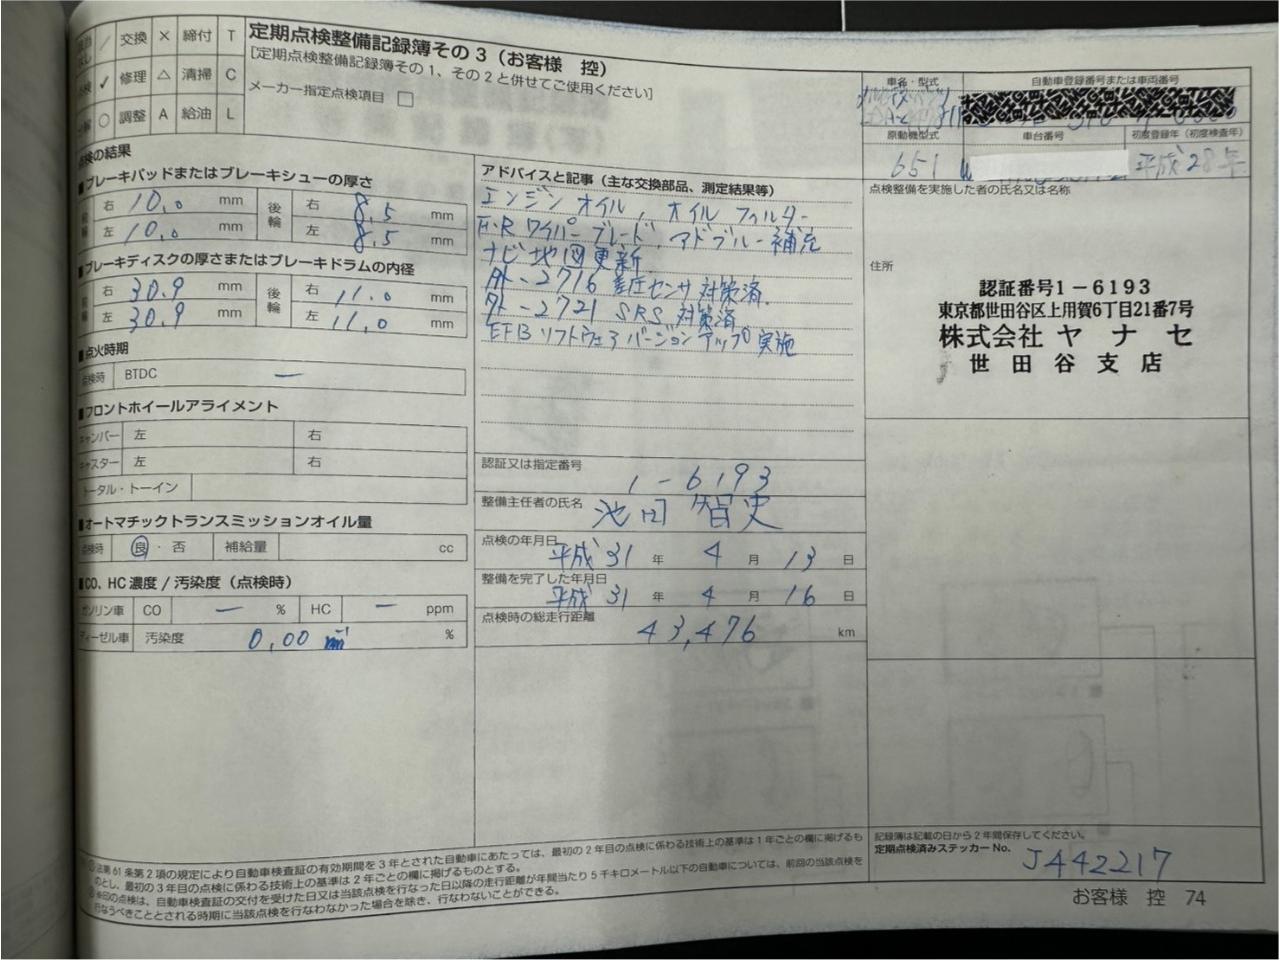 交換 × 締付 T
✓ 修理 △ 清掃 C
○ 調整 A 給油 L
定期点検整備記録簿その3（お客様 控）
[定期点検整備記録簿その1、その2と併せてご使用ください]
メーカー指定点検項目 □
点検の結果
■ブレーキパッドまたはブレーキシューの厚さ
右 10.0 mm 後輪 右 8.5 mm
左 10.0 mm 左 8.5 mm
■ブレーキディスクの厚さまたはブレーキドラムの内径
右 30.9 mm 後輪 右 11.0 mm
左 30.9 mm 左 11.0 mm
■点火時期
点検時 BTDC ー
■フロントホイールアライメント
キャンバー 左 右
キャスター 左 右
トータル・トーイン
■オートマチックトランスミッションオイル量
点検時 良・否 補給量 cc
■CO、HC濃度／汚染度（点検時）
ガソリン車 CO ー % HC ー ppm
ディーゼル車 汚染度 0.00 m⁻¹ %
アドバイスと記事（主な交換部品、測定結果等）
エンジンオイル, オイルフィルター
F.R ワイパーブレード, アドブルー補充
ナビ地図更新
外-2716 差圧センサ対策済.
外-2721 SRS 対策済
ソフトウェアバージョンアップ実施
認証又は指定番号
1-6193
整備主任者の氏名
池田 智史
点検の年月日
平成31年 4月 13日
整備を完了した年月日
平成31年 4月 16日
点検時の総走行距離
43,476 km
車名・型式
自動車登録番号または車両番号
原動機型式 車台番号 初度登録年（初度検査年）
651 平成28年
点検整備を実施した者の氏名又は名称
住所
認証番号1-6193
東京都世田谷区上用賀6丁目21番7号
株式会社ヤナセ
世田谷支店
法第61条第2項の規定により自動車検査証の有効期間を3年とされた自動車にあたっては、最初の2年目の点検に係わる技術上の基準は1年ごとの欄に掲げるも
のとし、最初の3年目の点検に係わる技術上の基準は2年ごとの欄に掲げるものとする。
の点検は、自動車検査証の交付を受けた日又は当該点検を行なった日以降の走行距離が年間当たり5千キロメートル以下の自動車については、前回の当該点検を
行なうべきこととされる時期に当該点検を行なわなかった場合を除き、行なわないことができる。
記録簿は記載の日から2年間保存してください。
定期点検済みステッカーNo. J442217
お客様 控 74